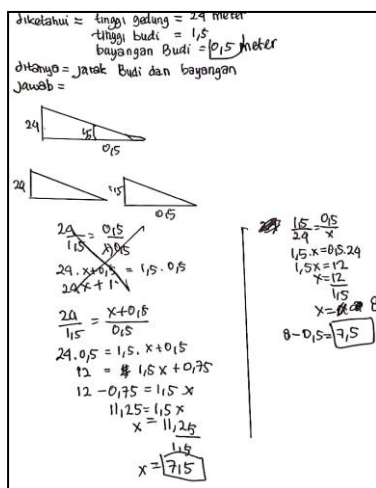 diketahui = tinggi gedung = 24 meter
tinggi budi = 1,5
bayangan Budi = 0,5 meter
ditanya = jarak Budi dan bayangan
jawab =
24
1,5
0,5
24
1,5
0,5
24/1,5 = 0,5/x+0,5
24.x+0,5 = 1,5.0,5
24x + 1
24/1,5 = x+0,5/0,5
24.0,5 = 1,5.x+0,5
12 = 1,5x + 0,75
12 - 0,75 = 1,5 x
11,25 = 1,5 x
x = 11,25/1,5
x = 7,5
1,5/24 = 0,5/x
1,5.x = 0,5.24
1,5x = 12
x = 12/1,5
x = 8
8 - 0,5 = 7,5